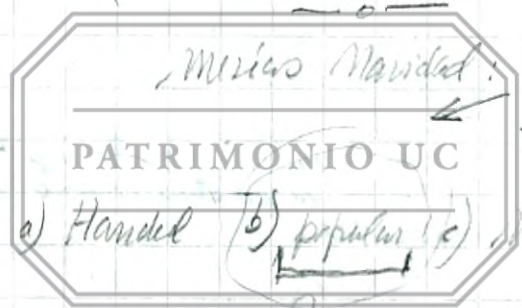 Navidad:
PATRIMONIO UC
a) Handel b) popular c)